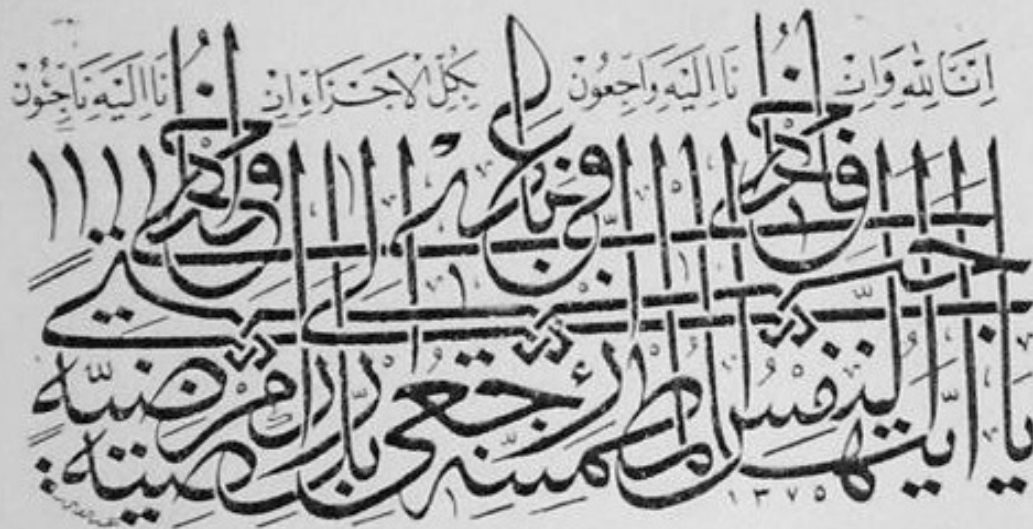 اِنَّا لِلّٰهِ وَاِنْ نَا اِلَيْهِ رَاجِعُونَ بِكُلِّ الْاَجْزَاءِ اِنْ نَا اِلَيْهِ
يا ايتها النفس المطمئنه ارجعي الى ربك راضيته مرضيه
فادخلي في عبادي وادخلي جنتي
١٣٧٥